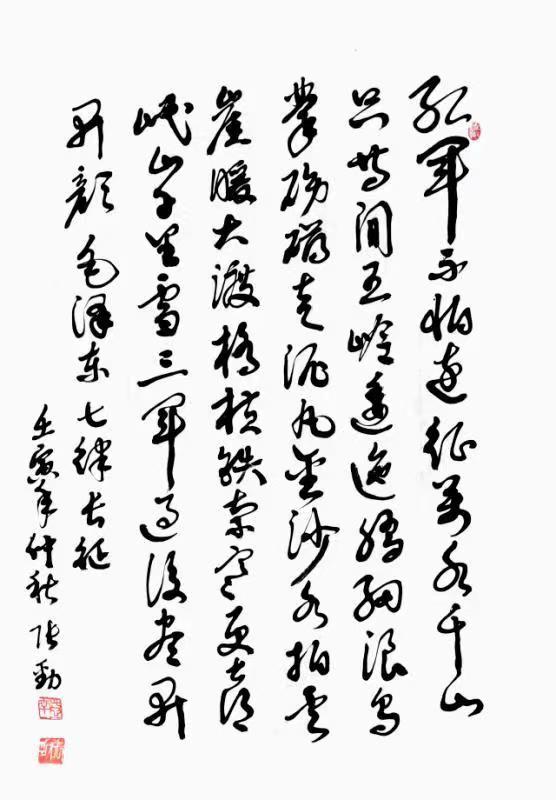 红军不怕远征万水千山
只等闲五岭逶迤腾细浪乌
蒙磅礴走泥丸金沙水拍云
崖暖大渡桥横铁索寒更喜
岷山千里雪三军过后尽开
开颜 毛泽东七律长征
壬寅年仲秋 张劲